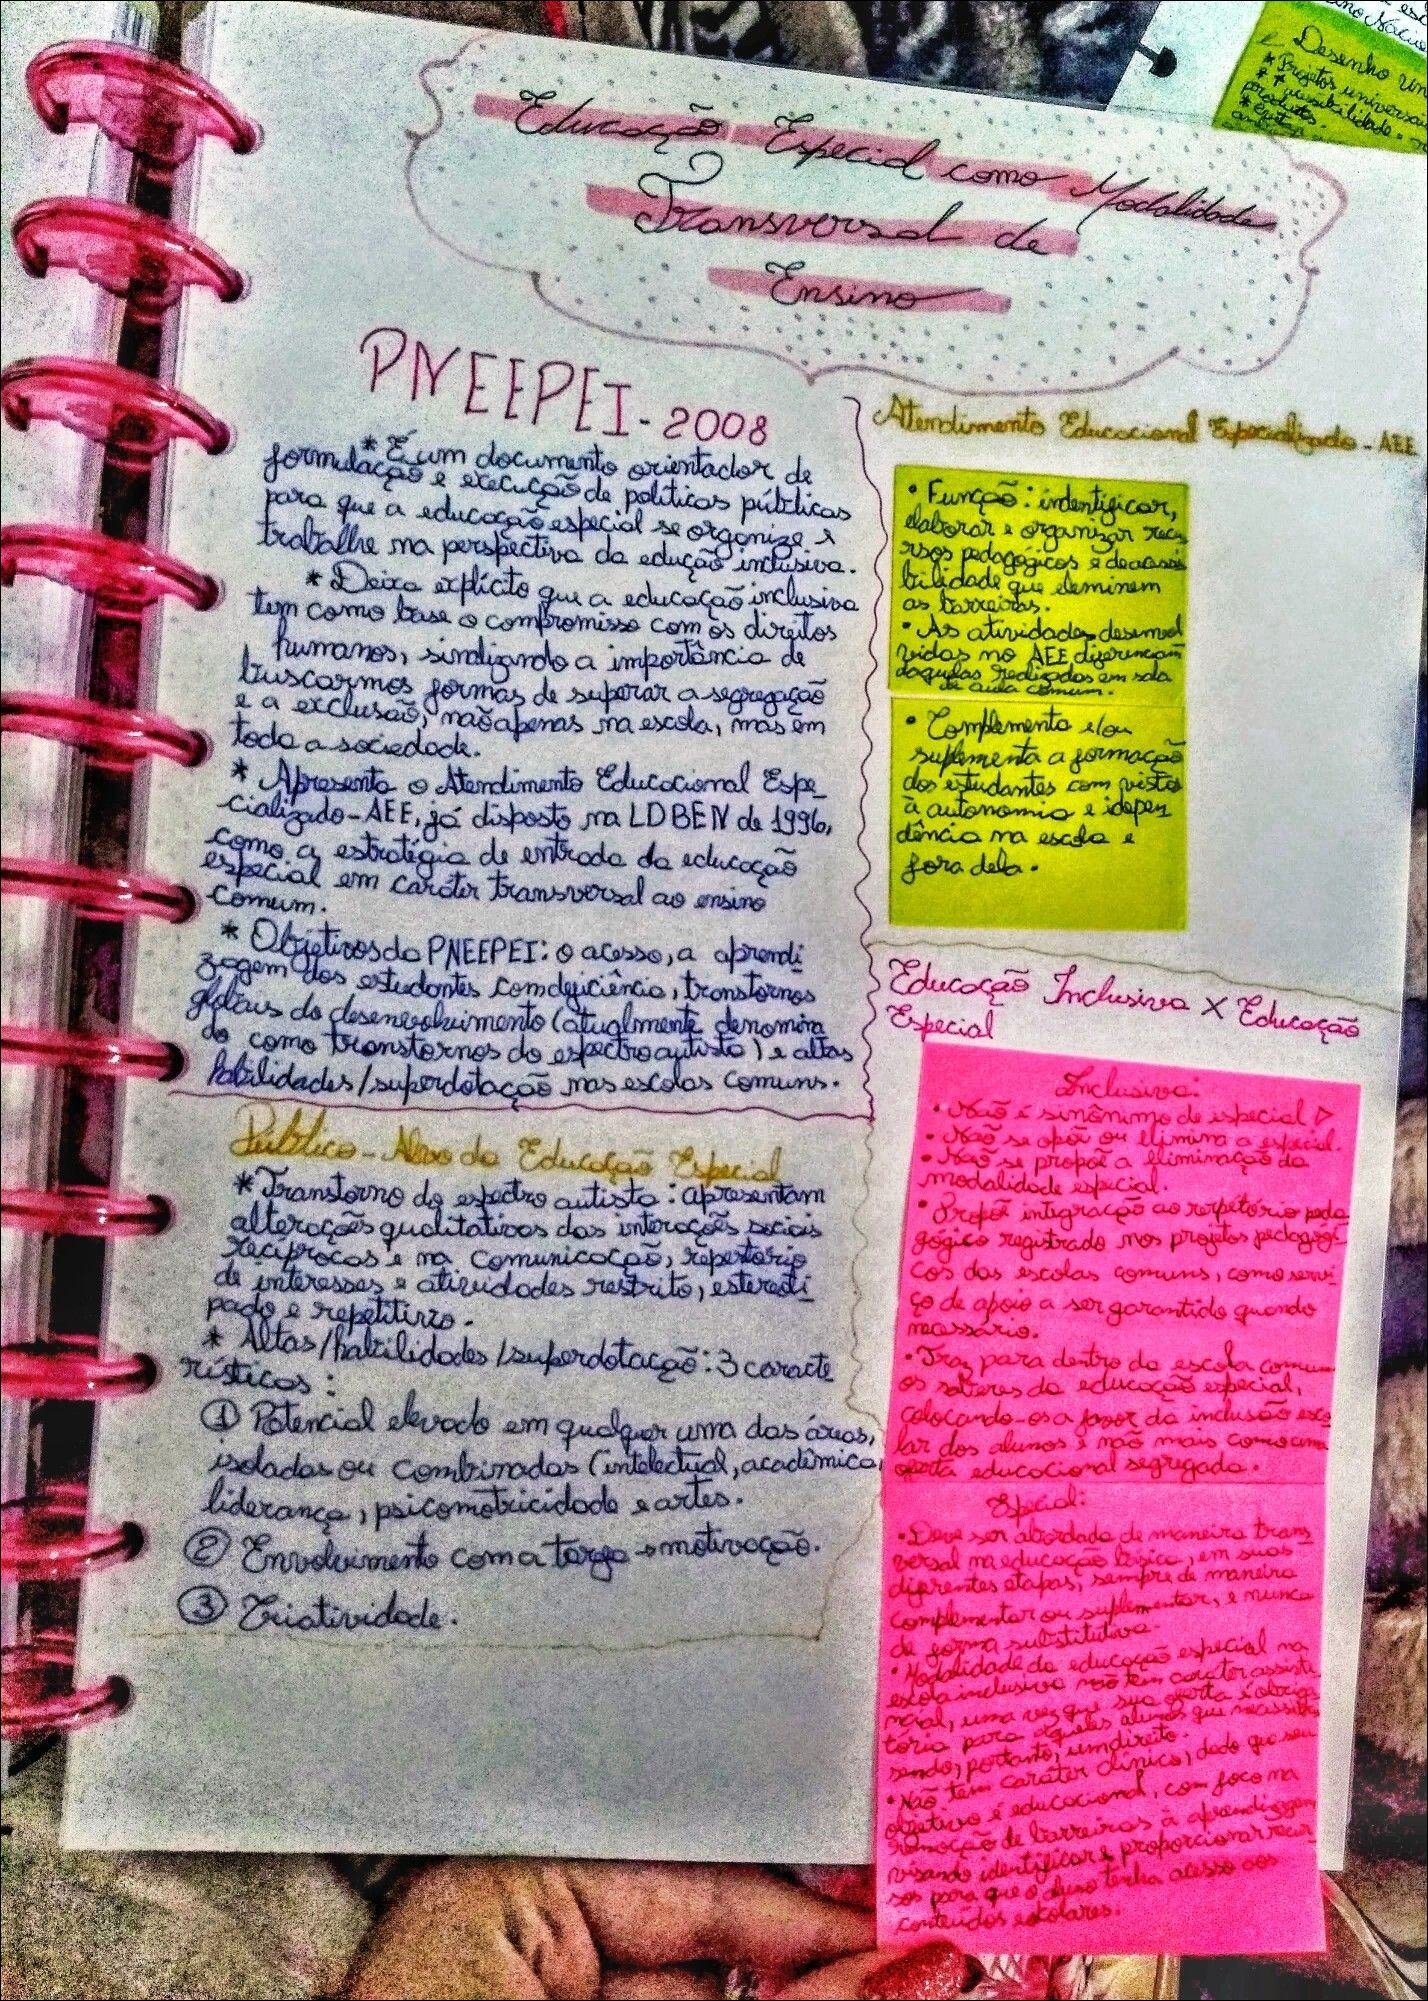 Educação Especial como Modalidade
Transversal de
Ensino
PNEEPEI - 2008
* É um documento orientador de
formulação e execução de políticas públicas
para que a educação especial se organize e
trabalhe na perspectiva da edução inclusiva.
* Deixa explícito que a educação inclusiva
tem como base o compromisso com os direitos
humanos, sindizando a importância de
buscarmos formas de superar a segregação
e a exclusão, não apenas na escola, mas em
toda a sociedade.
* Apresenta o Atendimento Educacional Espe-
cializado-AEE, já disposto na LDBEN de 1996,
como a estratégia de entrada da educação
especial em caráter transversal ao ensino
comum.
* Objetivos da PNEEPEI: o acesso, a aprendi
zagem dos estudantes com deficiência, transtornos
globais do desenvolvimento (atualmente denomina
do como transtornos do espectro autista) e altas
habilidades/superdotação nas escolas comuns.
Público-Alvo da Educação Especial
* Transtorno do espectro autista: apresentam
alterações qualitativas das interações sociais
recíprocas e na comunicação, repertorio
de interesses e atividades restrito, estereoti
pado e repetitivo.
* Altas/habilidades/superdotação: 3 caracte
rísticas:
① Potencial elevado em qualquer uma das áreas,
isoladas ou combinadas (intelectual, acadêmica,
liderança, psicomotricidade e artes.
② Envolvimento com a tarefa → motivação.
③ Criatividade.
Atendimento Educacional Especializado - AEE
• Função: indentificar,
elaborar e organizar recu
rsos pedagógicos e de acessi
bilidade que eleminem
as barreiras.
• As atividades desenvol
vidas no AEE diferenciam
daquelas realizadas em sala
de aula comum.
• Complementa e/ou
suplementa a formação
dos estudantes com vistas
à autonomia e idepen
dência na escola e
fora dela.
Educação Inclusiva X Educação
Especial
Inclusiva:
• Não é sinônimo de especial
• Não se opõe ou elimina a especial.
• Não se propõe a eliminação da
modalidade especial.
• Propõe integração ao repetório peda
gógico registrado nos projetos pedagógi
cos das escolas comuns, como servi
ço de apoio a ser garantido quando
necessário.
• Traz para dentro da escola comum
os saberes da educação especial,
colocando-os a favor da inclusão esco
lar dos alunos e não mais como uma
oferta educacional segregada.
Especial:
• Deve ser abordada de maneira trans
versal na educação básica, em suas
diferentes etapas, sempre de maneira
complementar ou suplementar, e nunca
de forma substitutiva.
• Modalidade da educação especial na
escola inclusiva não tem caráter assiste
ncial, uma vez que sua oferta é obriga
tória para aqueles alunos que necessita
sendo, portanto, um direito.
• Não tem caráter clínico, dado que seu
objetivo é educacional, com foco na
remoção de barreiras à aprendizagem
visando identificar e proporcionar recur
sos para que o aluno tenha acesso aos
conteúdos escolares.
Desenho
* Projetos universais
produtos.